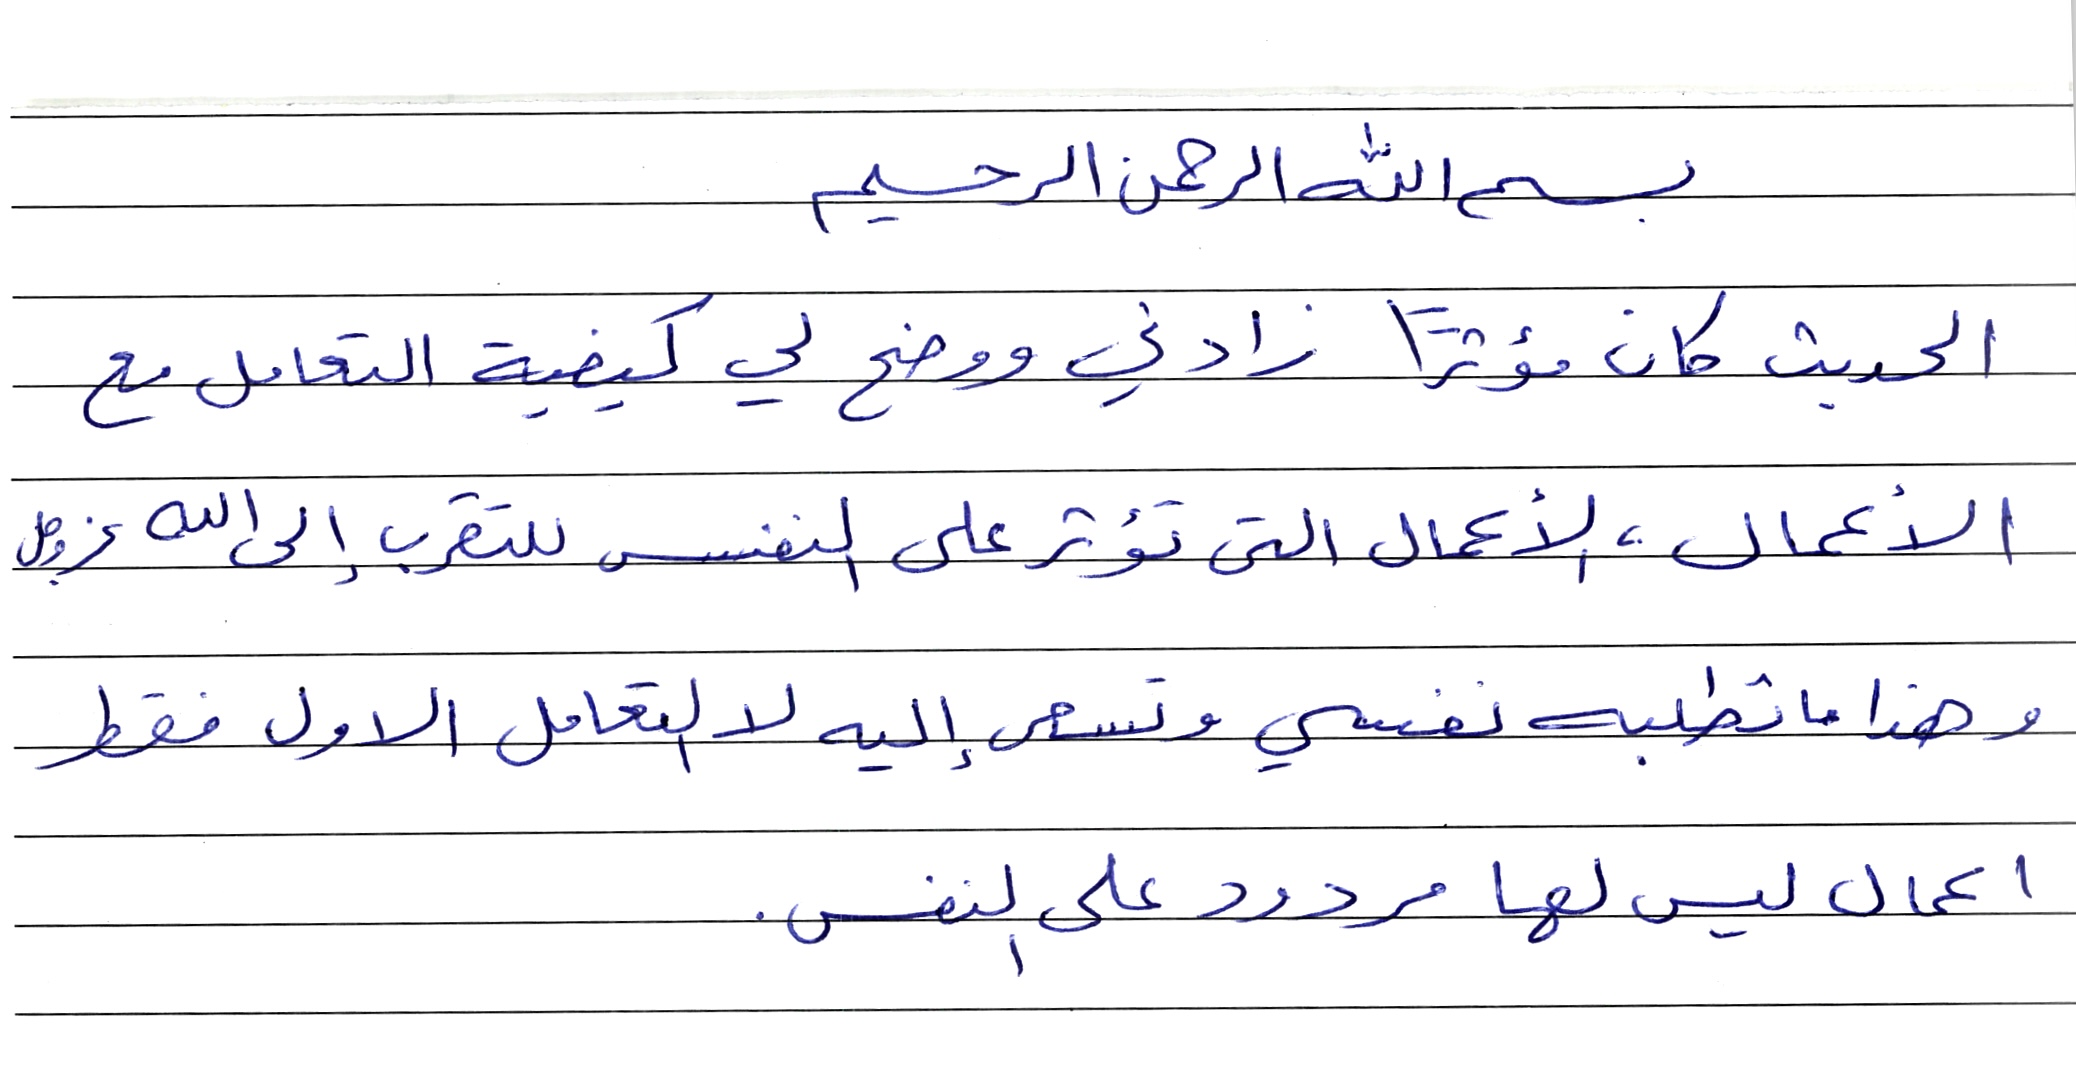 بسم الله الرحمن الرحيم
الحديث كان مؤثرًا زادني ووضح لي كيفية التعامل مع
الأعمال، الأعمال التي تؤثر على النفس للتقرب إلى الله عزوجل
وهذا ما تطلبه نفسي وتسعى إليه لا التعامل الاول فقط
اعمال ليس لها مردود على النفس.